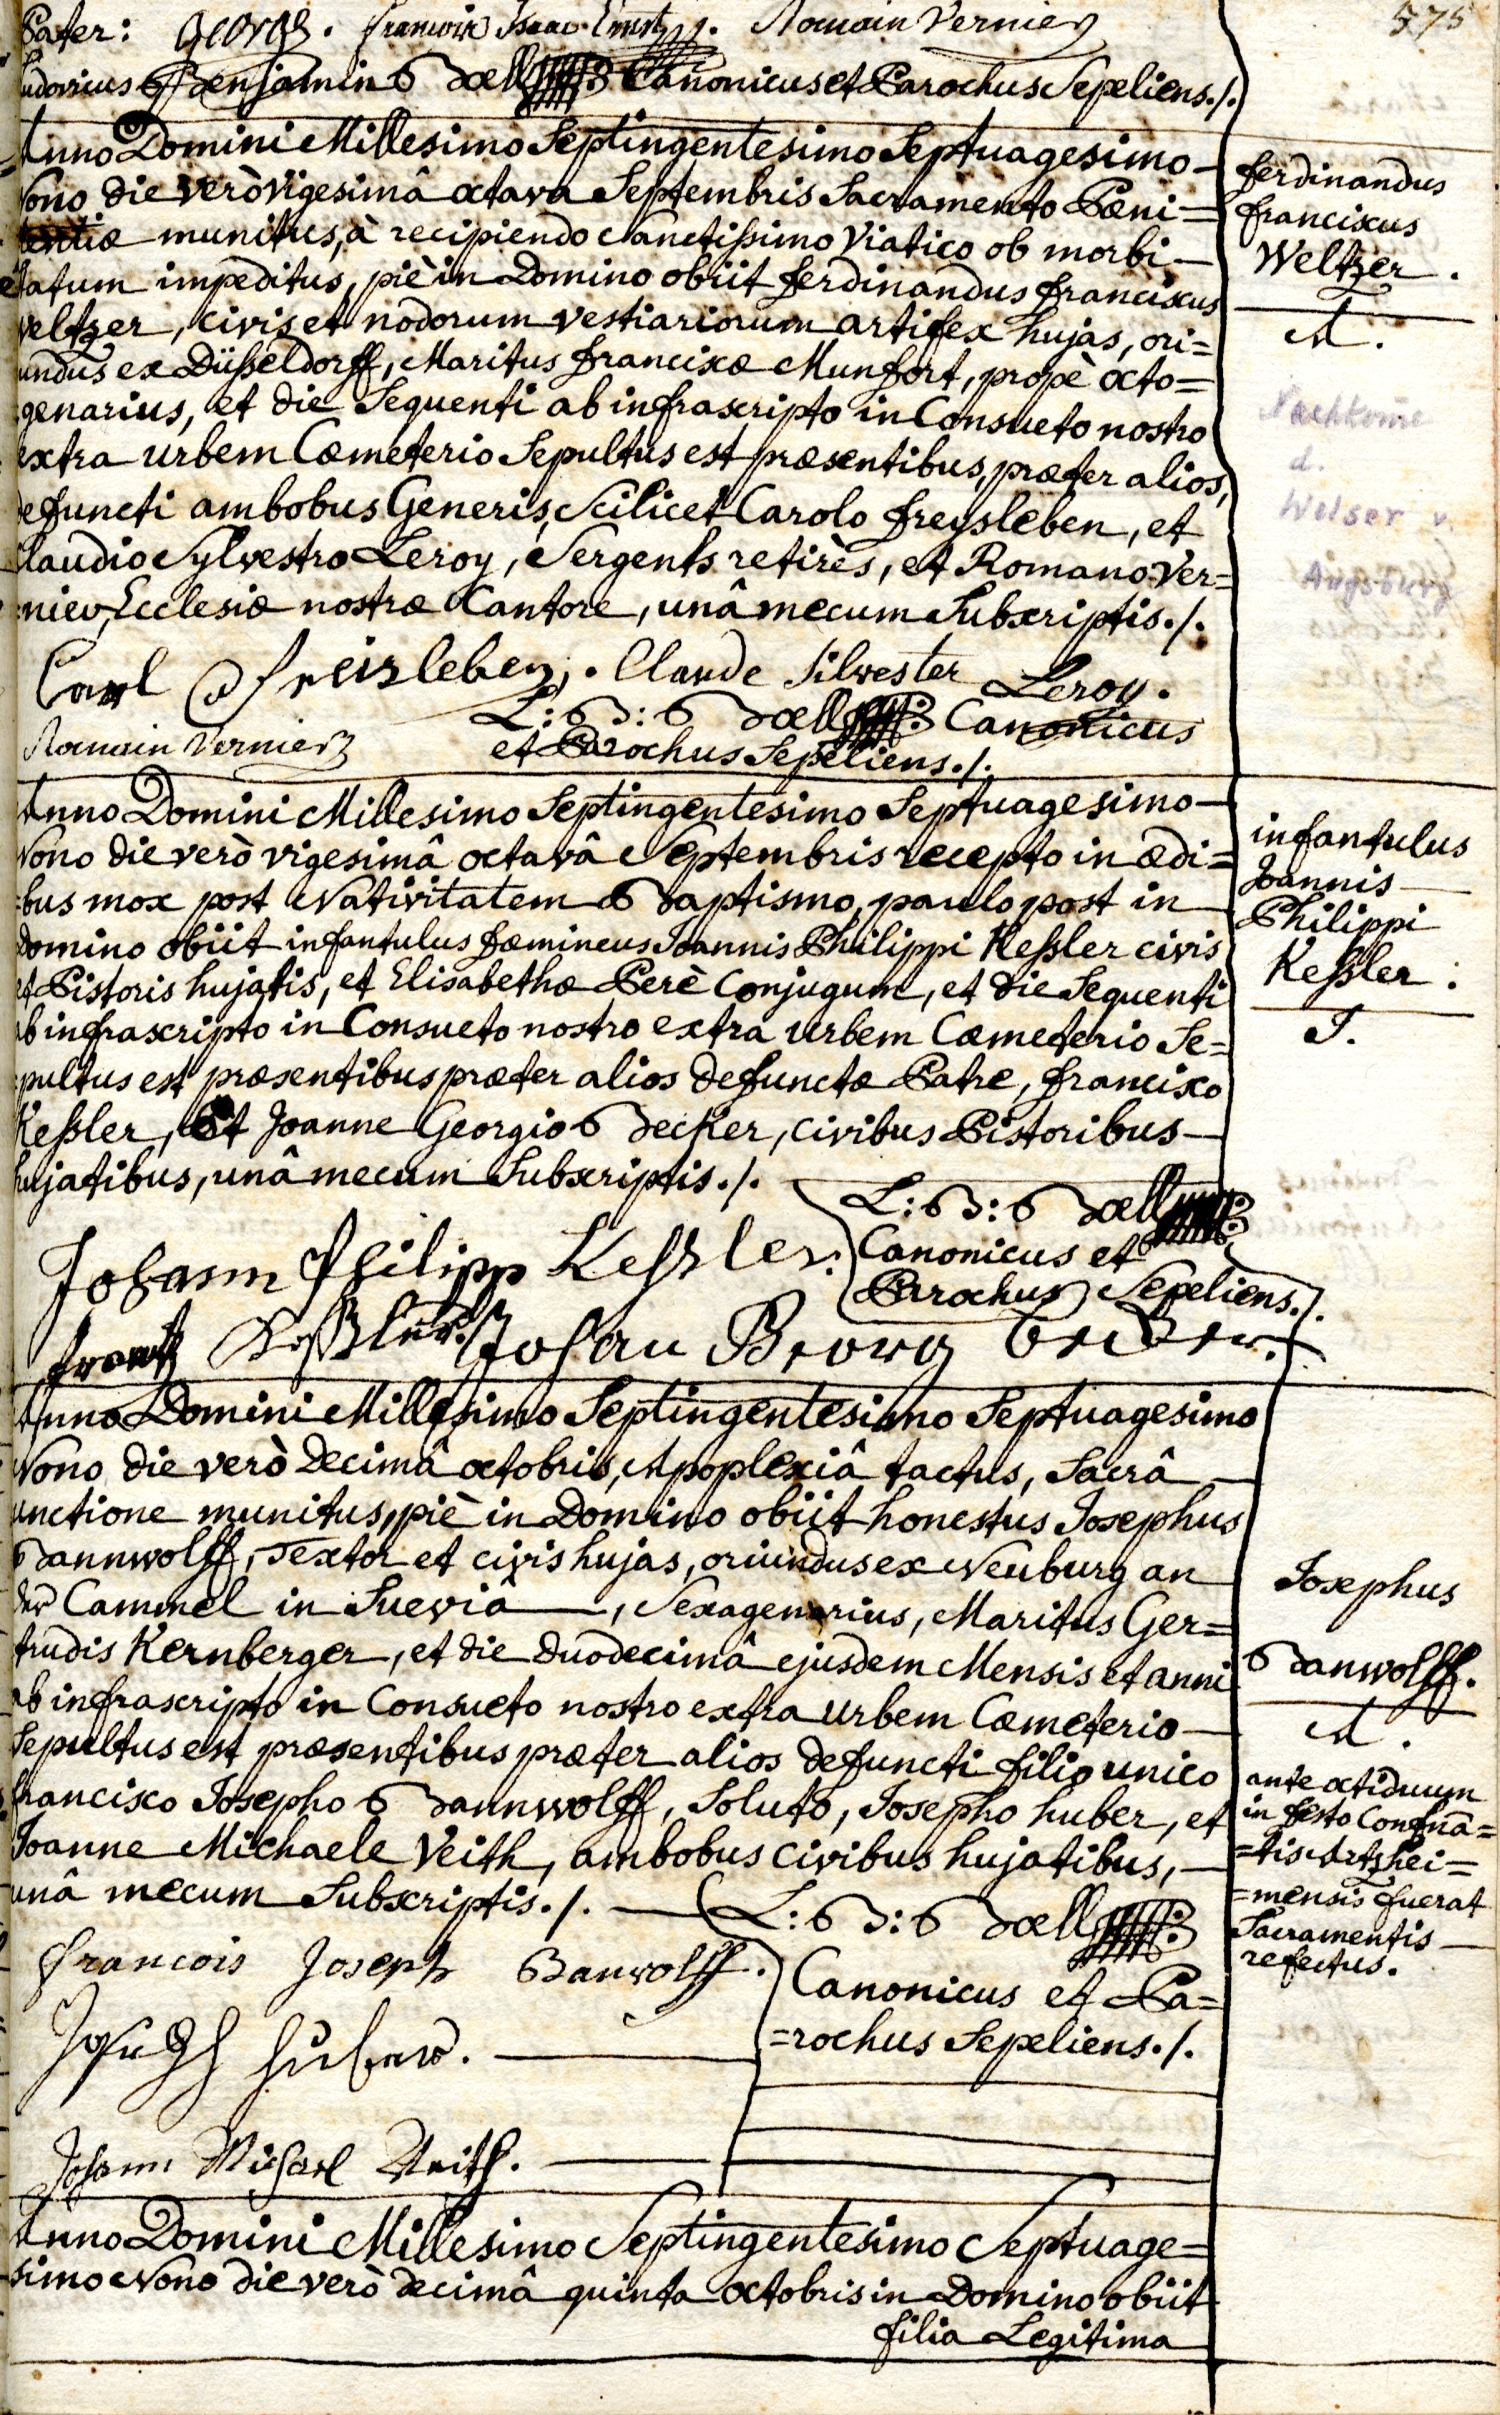 575
Pater: George. francoix Isaac Ernst. Romain Vernier
Ludovicus Benjamin Boell Canonicus et Parochus Sepeliens./.
Anno Domini Millesimo Septingentesimo Septuagesimo-
Nono die verò vigesimâ octava Septembris Sacramento Pæni=
tentiæ munitus, à recipiendo Sanctissimo Viatico ob morbi-
statum impeditus, piè in Domino obiit ferdinandus franciscus
Weltzer, civis et nodorum vestiariorum artifex hujas, ori=
undus ex Düsseldorff, Maritus franciscæ Munfort, propè octo=
genarius, et die Sequenti ab infrascripto in Consueto nostro
extra urbem Cæmeterio Sepultus est præsentibus, præter alios,
defuncti ambobus Generis, Scilicet Carolo freysleben, et
Claudio Sylvestro Leroy, Sergents retirès, et Romano Ver=
nier, Ecclesiæ nostræ Cantore, unâ mecum Subscriptis./.
Carl freisleben. Claude Silvester Leroy.
L: B: Boell Canonicus
Romain Vernier et Parochus Sepeliens./.
ferdinandus
franciscus
Weltzer.
A.
Nachkome
d.
Welser v.
Augsburg
Anno Domini Millesimo Septingentesimo Septuagesimo-
Nono die verò vigesimâ octavâ Septembris recepto in ædi=
bus mox post Nativitatem Baptismo, paulo post in
Domino obiit infantulus fæmineus Joannis Philippi Keßler civis
et Pistoris hujatis, et Elisabethæ Perè Conjugum, et die Sequenti
ab infrascripto in Consueto nostro extra urbem Cæmeterio Se=
pultus est præsentibus præter alios defunctæ Patre, francisco
Keßler, Et Joanne Georgio Becker, civibus Pistoribus-
hujatibus, unâ mecum Subscriptis./.
L: B: Boell
Canonicus et
Parochus Sepeliens./.
Johann Philipp Keßler.
frantz Keßler. Johan Georg Becker.
infantulus
Joannis
Philippi
Keßler.
I.
Anno Domini Millesimo Septingentesimo Septuagesimo
Nono die verò Decimâ octobris, Apoplexiâ tactus, Sacrâ
unctione munitus, piè in Domino obiit honestus Josephus
Bannwolff, Textor et civis hujas, oriundus ex Neuburg an
der Cammel in Sueviâ, Sexagenarius, Maritus Ger=
trudis Kernberger, et die duodecimâ ejusdem Mensis et anni
ab infrascripto in Consueto nostro extra urbem Cæmeterio
Sepultus est præsentibus præter alios defuncti filio unico
francisco Josepho Bannwolff, Soluto, Josepho huber, et
Joanne Michaele Veith, ambobus civibus hujatibus,
unâ mecum Subscriptis./.
L: B: Boell
Canonicus et Pa=
=rochus Sepeliens./.
francois Joseph Banwolff.
Joseph Huber.
Johann Michael Veith.
Josephus
Banwolff.
A.
ante octiduum
in festo Confrnâ=
=tis Artzhei=
=mensis fuerat
Sacramentis
refectus.
Anno Domini Millesimo Septingentesimo Septuage=
simo Nono die verò decimâ quinta octobris in Domino obiit
filia Legitima